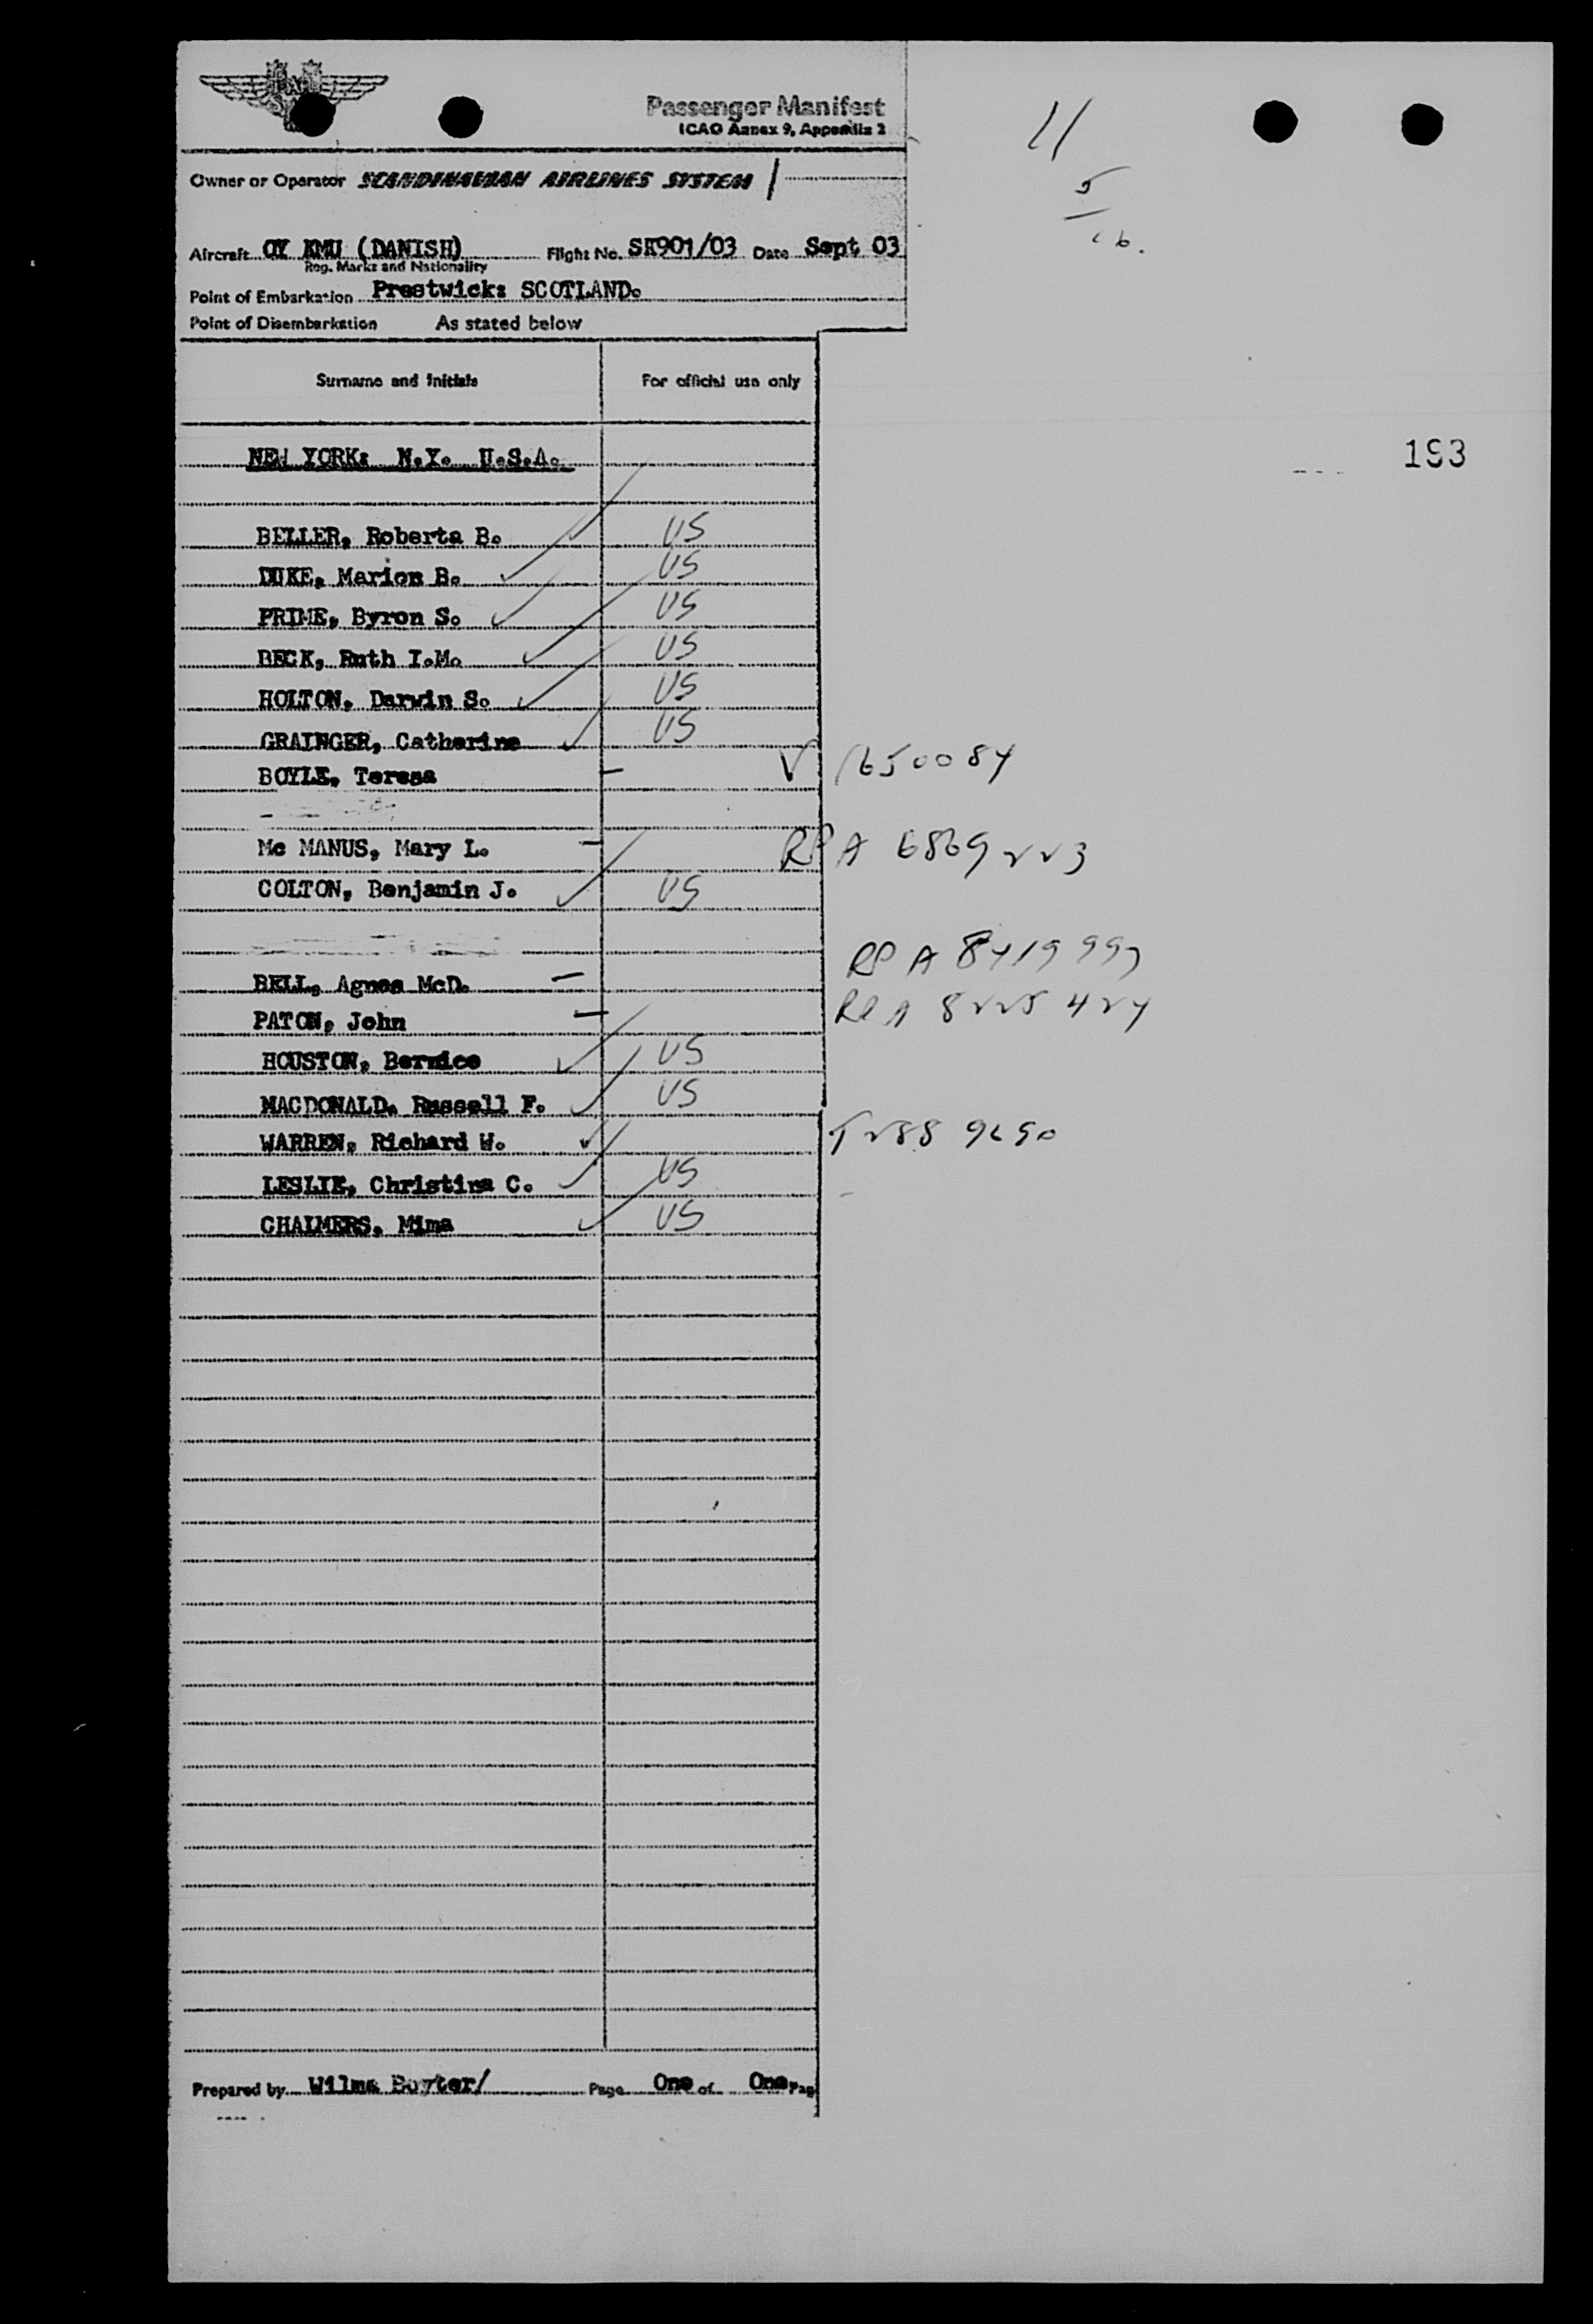 Passenger Manifest
ICAO Annex 9, Appendix 2
11
5
16.
Owner or Operator SCANDINAVIAN AIRLINES SYSTEM /
Aircraft OY KMU (DANISH) Flight No. SK901/03 Date Sept 03
Reg. Marks and Nationality
Point of Embarkation Prestwick: SCOTLAND.
Point of Disembarkation As stated below
Surname and Initials For official use only
193
NEW YORK: N.Y. U.S.A.
BELLER, Roberta B. US
DUKE, Marion B. US
PRIME, Byron S. US
BECK, Ruth I.M. US
HOLTON, Darwin S. US
GRAINGER, Catherine US
BOYLE, Teresa V 1650084
Mc MANUS, Mary L. RP A 6869223
COLTON, Benjamin J. US
BELL, Agnes McD. RP A 8419997
PATON, John RP A 8225424
HOUSTON, Bernice US
MACDONALD, Russell F. US
WARREN, Richard W. T288 9690
LESLIE, Christina C. US
CHALMERS, Mima US
Prepared by Wilma / Page One of One Pag